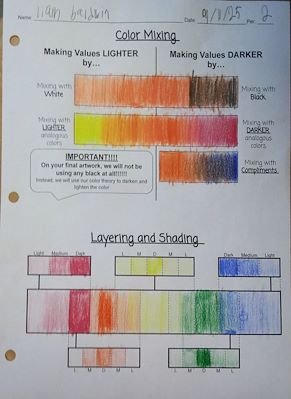 Name liam Date 9/11/25 Per: 2
Color Mixing
Making Values LIGHTER by...
Making Values DARKER by...
Mixing with White
Mixing with Black
Mixing with LIGHTER analogous colors
Mixing with DARKER analogous colors
IMPORTANT!!!!
On your final artwork, we will not be
using any black at all!!!!!!
Instead, we will use our color theory to darken and
lighten the color
Mixing with Compliments
Layering and Shading
Light Medium Dark
L M D M L
Dark Medium Light
L M D M L
L M D M L